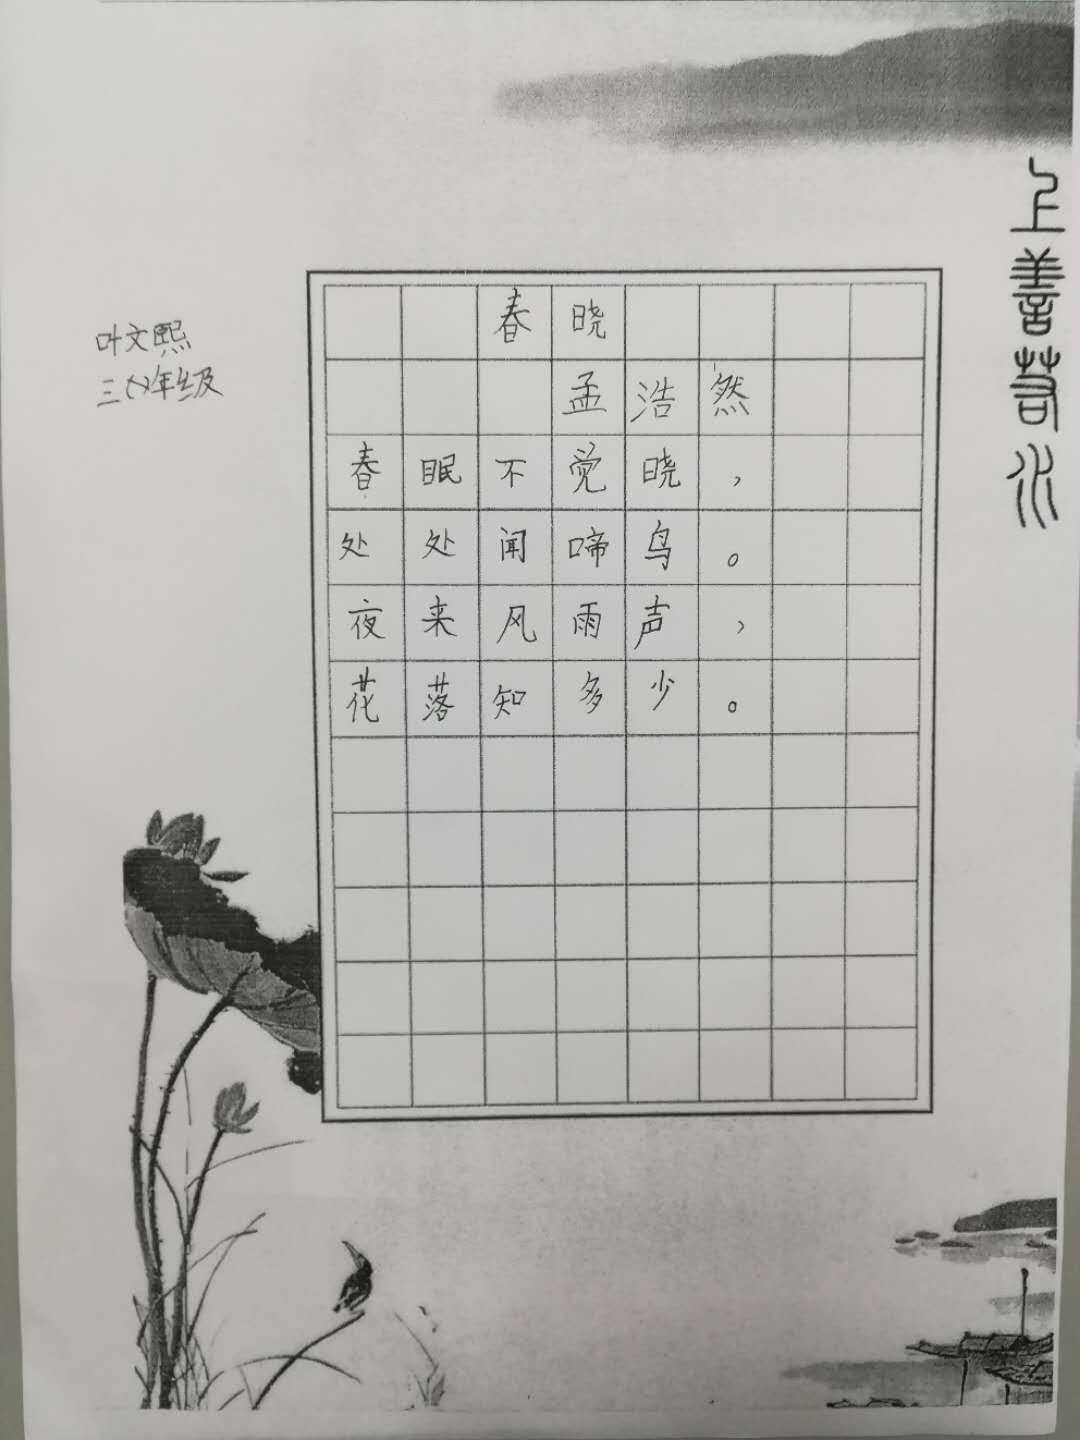 上善若水
叶文熙
三(4)年级
春晓
孟浩然
春眠不觉晓，
处处闻啼鸟。
夜来风雨声，
花落知多少。